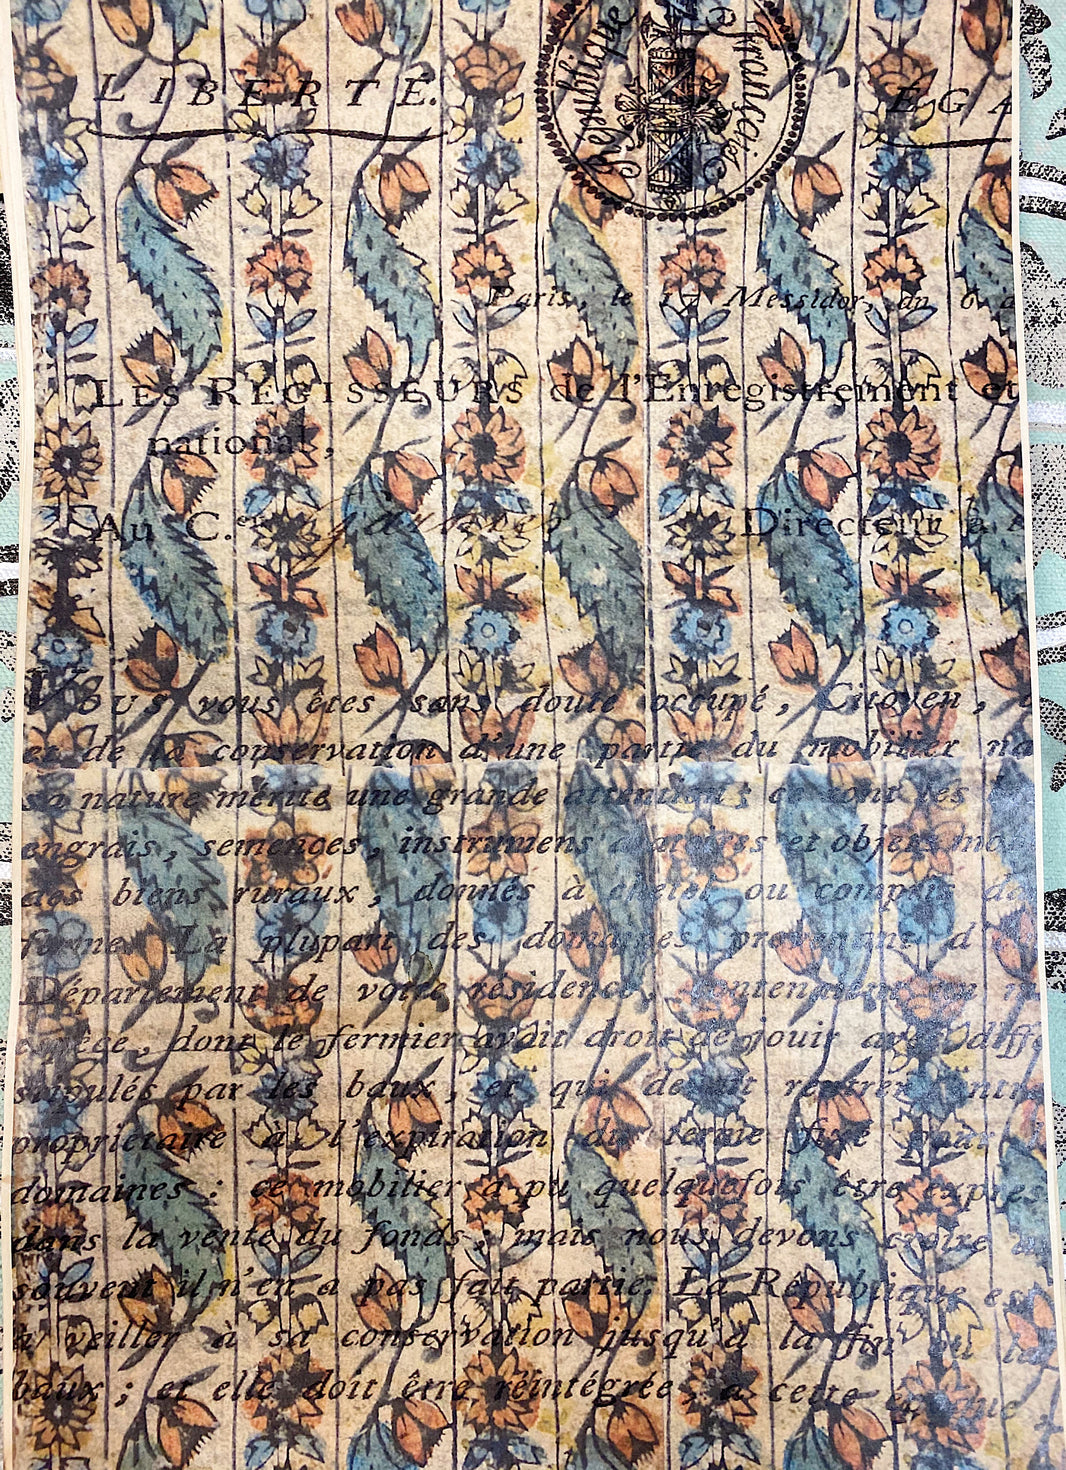 LIBERTÉ.
République Française
ÉGA
Paris, le 17 Messidor, an 6
LES RÉGISSEURS de l'Enregistrement et
national,
Au C.en Directeur à
Vous vous êtes sans doute occupé, Citoyen,
et de la conservation d'une partie du mobilier na
sa nature mérite une grande attention; ce sont les
engrais, semences, instrumens aratoires et objets mo
des biens ruraux, donnés à chetel ou compris d
ferme. La plupart des domaines provenant d'
Département de votre résidence, contenaient un m
espèce, dont le fermier avait droit de jouir av diffé
stipulés par les baux, et qui devait rentrer entr
propriétaire à l'expiration du terme fixé pour
domaines: ce mobilier a pu quelquefois être expres
dans la vente du fonds; mais nous devons croire
souvent il n'en a pas fait partie. La République es
à veiller à sa conservation jusqu'à la fin ou la
baux; et elle doit être réintégrée, à cette époque,